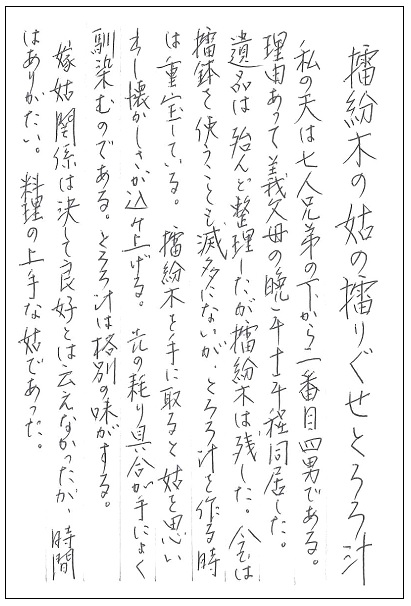 擂紛木の姑の擂りぐせとろろ汁
私の夫は七人兄弟の下から二番目四男である。
理由あって義父母の晩年十年程同居した。
遺品は殆んど整理したが擂紛木は残した。今では
擂鉢を使うことも滅多にないが、とろろ汁を作る時
は重宝している。擂紛木を手に取ると姑を思い
出し懐かしさが込み上げる。先の耗り具合が手によく
馴染むのである。とろろ汁は格別の味がする。
嫁姑関係は決して良好とは云えなかったが、時間
はありがたい。料理の上手な姑であった。